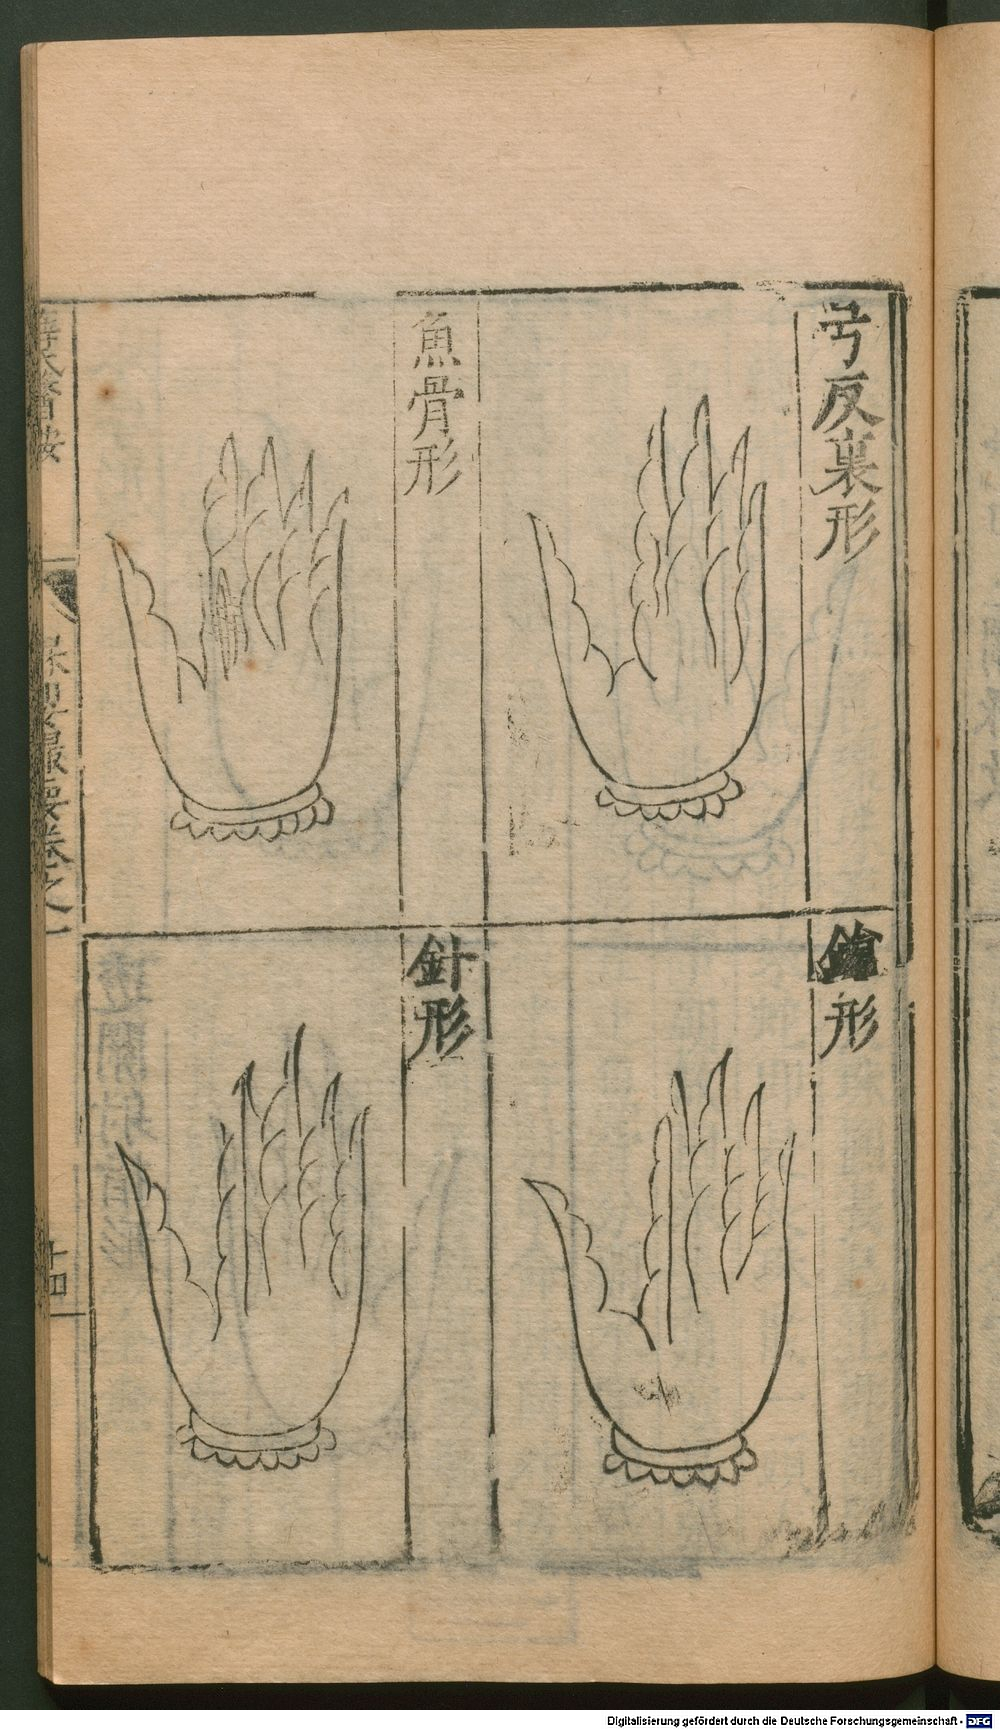 弓反裏形
魚骨形
形
針形
保嬰最要卷之一
十四
Digitalisierung gefördert durch die Deutsche Forschungsgemeinschaft - DFG